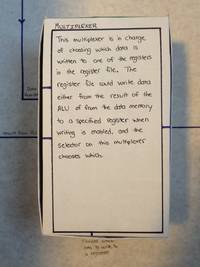 MULTIPLEXER
This multiplexer is in charge
of choosing which data is
written to one of the registers
in the register file. The
register file could write data
either from the result of the
ALU of from the data memory
to a specified register when
writing is enabled, and the
selector on this multiplexer
chooses which.